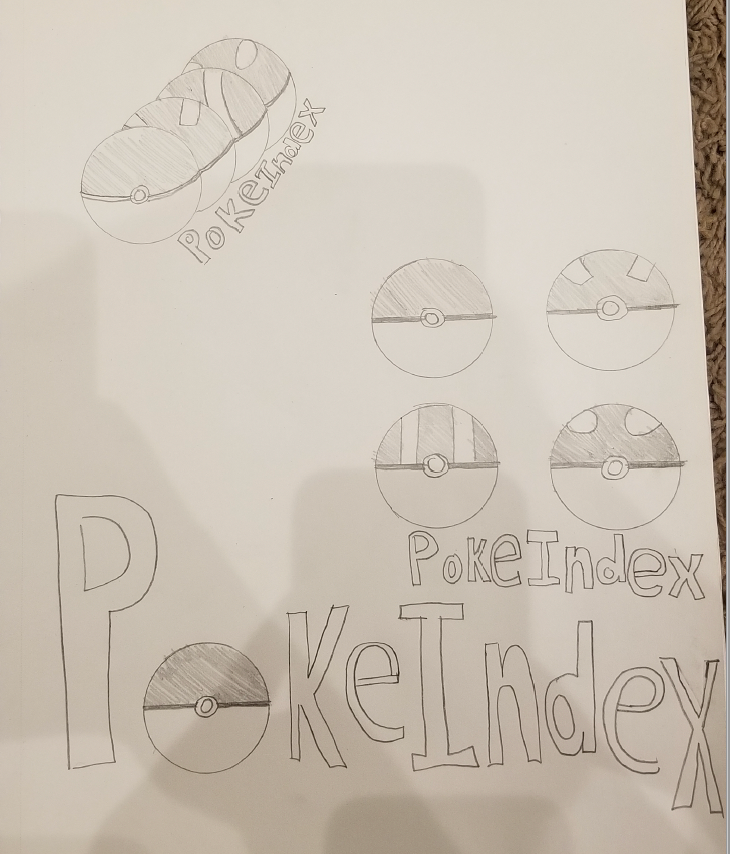 PokeIndex
PokeIndex
PokeIndex